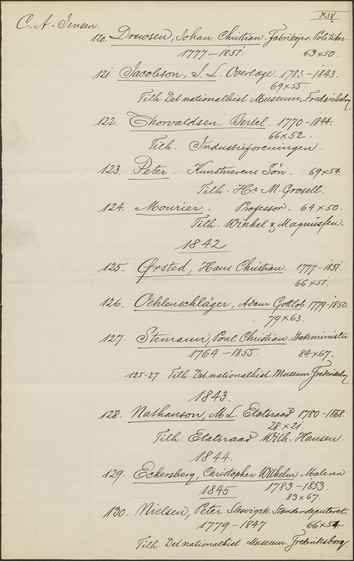 XIV
C. A. Jensen.
120. Drewsen, Johan Christian. Fabrikejer, Politiker
1777-1851 63×50.
121. Jacobson, S. L. Overlæge. 1783-1843.
69×55
Tilh. Det nationalhist. Museum, Frederiksborg
122. Thorvaldsen Bertel. 1770-1844.
66×52.
Tilh. Industriforeningen.
123. Peter. Kunstnerens Søn. 69×54.
Tilh. Hr. M. Grosell.
124. Mourier. Professor. 64×50.
Tilh. Winkel & Magnussen.
1842
125. Ørsted, Hans Christian. 1777-1851
66×51.
126. Oehlenschläger, Adam Gottlob. 1779-1850.
79×63.
127. Stemann, Poul Christian. Statsminister
1764-1855 84×67.
125-27 Tilh. Det nationalhist. Museum Frederiksborg
1843.
128. Nathanson, M. L. Etatsraad 1780-1868
28×21
Tilh. Etatsraad Vilh. Hansen
1844.
129. Eckersberg, Christopher Wilhelm. Maleren
1783-1853
1845 83×67
130. Nielsen, Peter Stænderdeputeret.
1779-1847 66×54
Tilh. Det nationalhist. Museum Frederiksborg